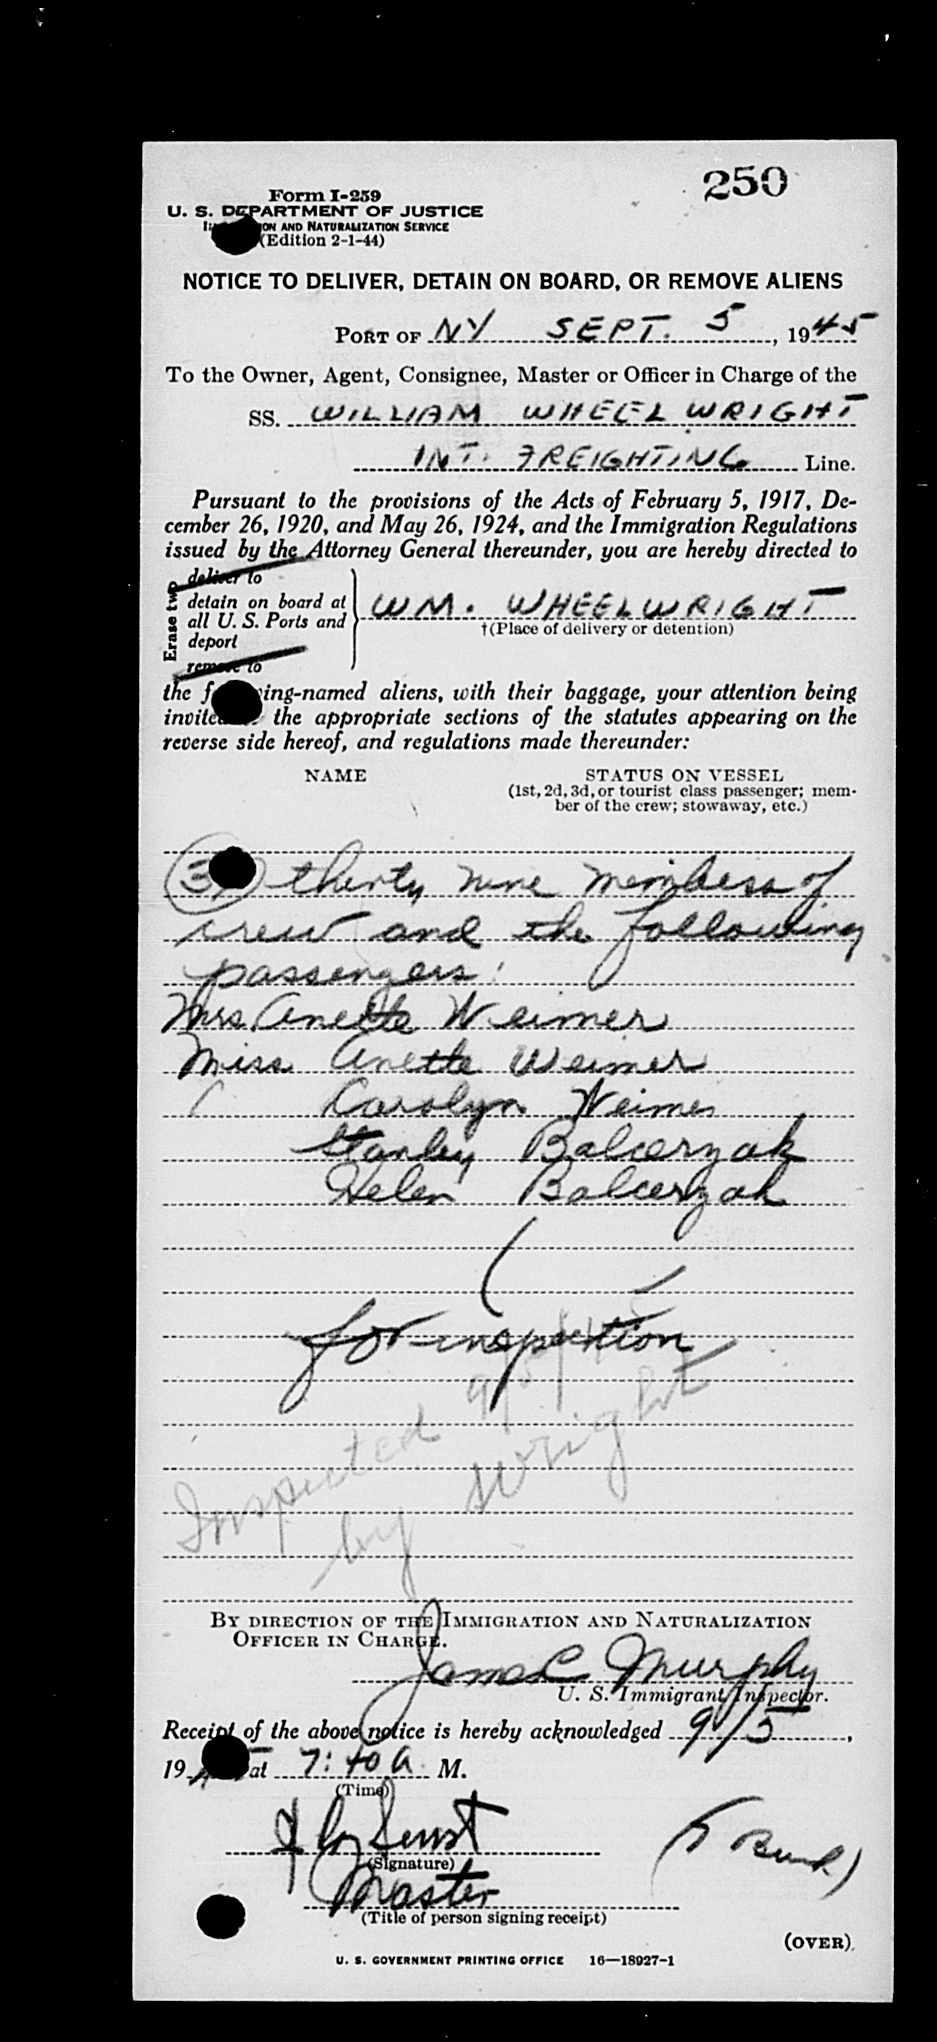 250
Form I-259
U. S. DEPARTMENT OF JUSTICE
ON AND NATURALIZATION SERVICE
(Edition 2-1-44)
NOTICE TO DELIVER, DETAIN ON BOARD, OR REMOVE ALIENS
PORT OF NY SEPT. 5, 1945
To the Owner, Agent, Consignee, Master or Officer in Charge of the
SS. WILLIAM WHEELWRIGHT
INT. FREIGHTING Line.
Pursuant to the provisions of the Acts of February 5, 1917, De-
cember 26, 1920, and May 26, 1924, and the Immigration Regulations
issued by the Attorney General thereunder, you are hereby directed to
Erase two
deliver to
detain on board at
all U. S. Ports and
deport
remove to
WM. WHEELWRIGHT
†(Place of delivery or detention)
the following-named aliens, with their baggage, your attention being
invited to the appropriate sections of the statutes appearing on the
reverse side hereof, and regulations made thereunder:
NAME STATUS ON VESSEL
(1st, 2d, 3d, or tourist class passenger; mem-
ber of the crew; stowaway, etc.)
(39) thirty nine members of
crew and the following
passengers:
Mrs. Anette Weimer
Miss Anette Weimer
Carolyn Weimer
Stanley Balcerzak
Helen Balcerzak
for inspection
Inspected 9/5/45
by Wright
BY DIRECTION OF THE IMMIGRATION AND NATURALIZATION
OFFICER IN CHARGE.
James Murphy
U. S. Immigrant Inspector.
Receipt of the above notice is hereby acknowledged 9/5,
1945 at 7:40 A. M.
(Time)
(Signature)
Master
(Title of person signing receipt)
(OVER)
U. S. GOVERNMENT PRINTING OFFICE 16—18927-1